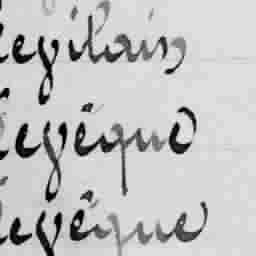 Levilain
Levêque
Levêque